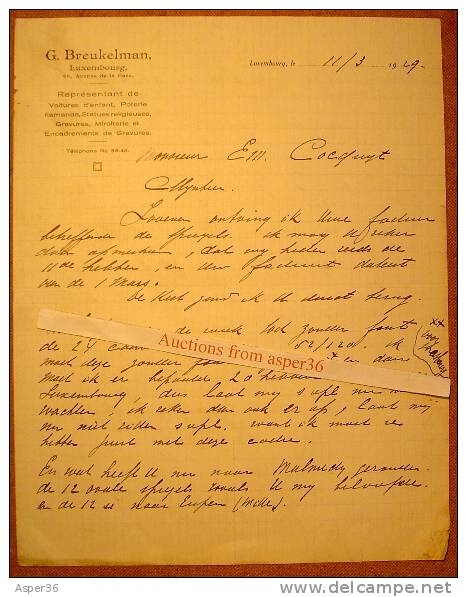 G. Breukelman,
Luxembourg,
Avenue de la Gare.
Représentant de
Voitures d'enfant, Poterie
flamande, Statues religieuses,
Gravures, Miroiterie et
Encadrements de Gravures.
Téléphone No
Luxembourg, le 11/3 1929-
Monsieur Em. Cocquyt
Mynheer.
ontving ik Uwe factuur
betreffende de spiegels. ik mag U zeker
doen opmerken, dat wy heden reeds de
11de hebben, en Uw factuur dateert
van de 1 Mars.
ik U direct terug.
de week toch zonder fout
de 24 52/120. ik
moet deze zonder
moet ik er bepaald 20 hebben
Luxembourg, dus laat my svpl. niet
wachten, ik reken dan ook er op, laat my
nu niet zitten svpl. want ik moet ze
hebben juist met deze
En wat heeft U nu naar Malmedy gezonden.
de 12 ovale spiegels zooals U my beloofde.
en de 12 naar Eupen
Auctions from asper36
Asper36
www.delcampe.net